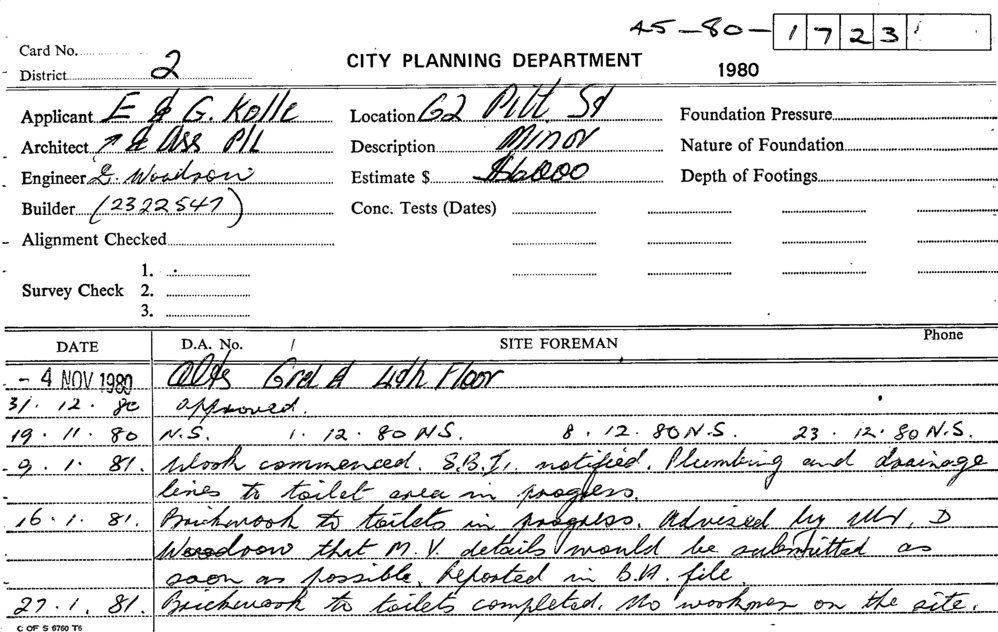 45-80-1723
Card No.
District 2
CITY PLANNING DEPARTMENT
1980
Applicant E & G. Kolle
Location 62 Pitt St
Foundation Pressure
Architect & Ass P/L
Description Minor
Nature of Foundation
Engineer D. Woodson
Estimate $ $6000
Depth of Footings
Builder (2322547)
Conc. Tests (Dates)
Alignment Checked
1.
Survey Check 2.
3.
DATE D.A. No. SITE FOREMAN Phone
- 4 NOV 1980 Alts Grd & 4th Floor
31. 12. 80 approved.
19. 11. 80 N.S. 1. 12. 80 N.S. 8. 12. 80 N.S. 23. 12. 80 N.S.
9. 1. 81. Work commenced. S.B.I. notified. Plumbing and drainage
lines to toilet area in progress.
16. 1. 81. Brickwork to toilets in progress. Advised by Mr. D
Woodrow that M.V. details would be submitted as
soon as possible. Reported in B.A. file.
27. 1. 81. Brickwork to toilets completed. No workmen on the site.
C OF S 6760 T6